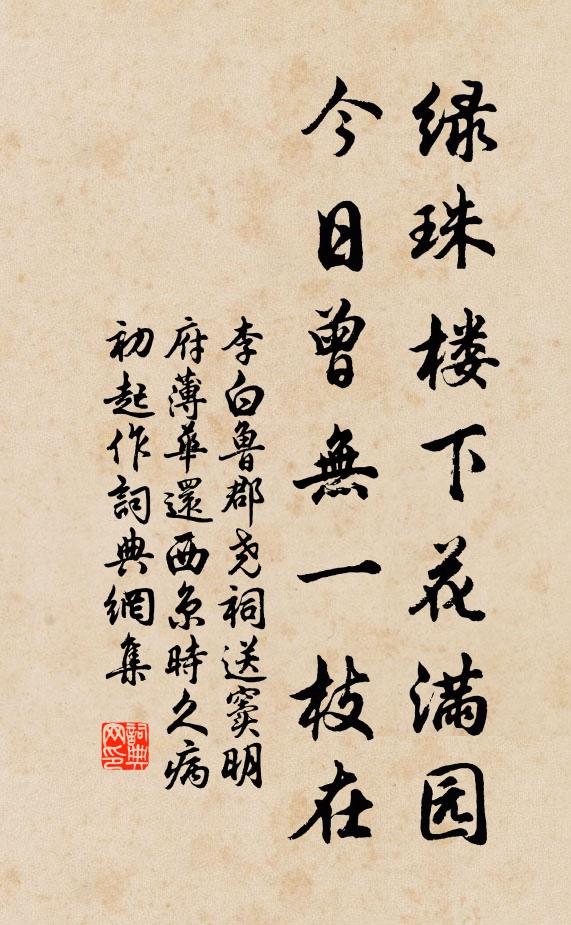 绿珠楼下花满园
今日曾無一枝在
李白魯郡尧祠送窦明
府薄華還西京時久病
初起作詞典網集
詞典网印